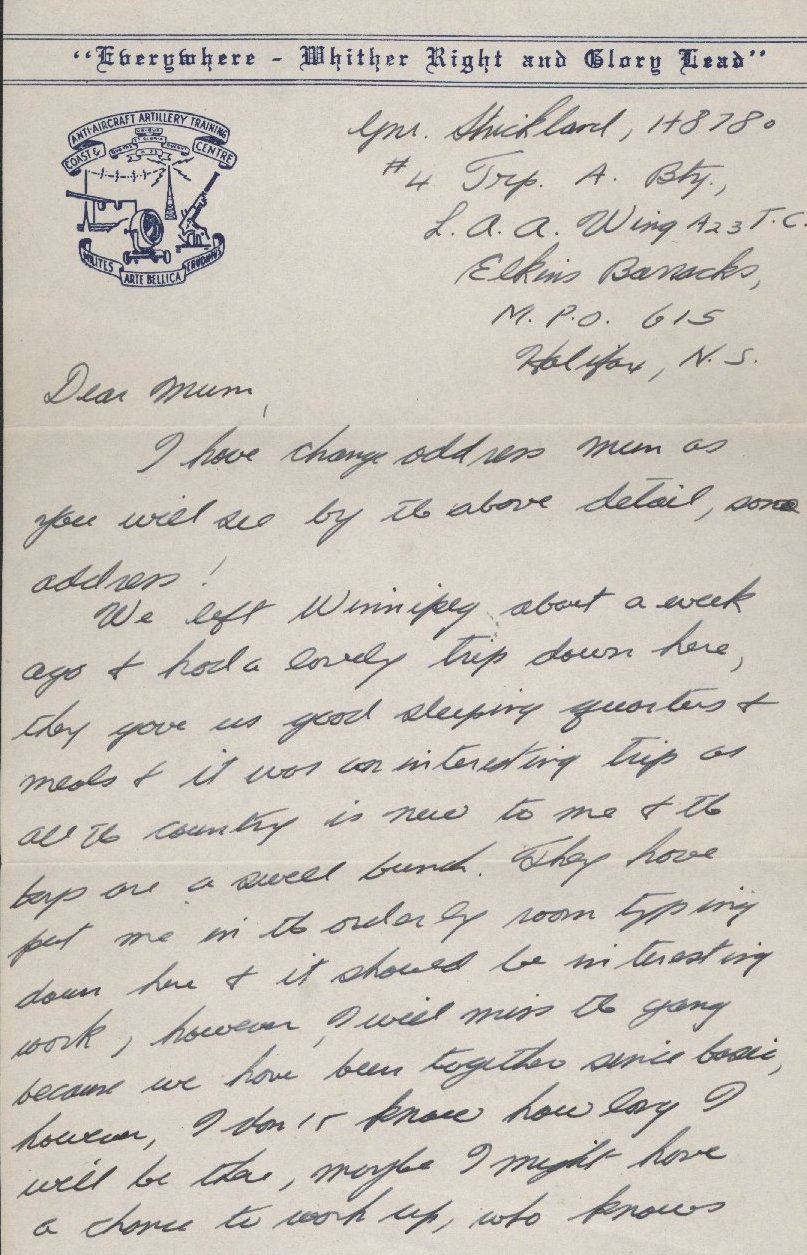 "Everywhere - Whither Right and Glory Lead"
COAST & ANTI-AIRCRAFT ARTILLERY TRAINING CENTRE
MILITES ARTE BELLICA ERUDIMUS
Gnr. Strickland, H8780
#4 Trp. A. Bty.,
L.A.A. Wing A23 T.C.
Elkins Barracks,
M.P.O. 615
Halifax, N.S.
Dear Mum,
I have change address mum as
you will see by the above detail, some
address!
We left Winnipeg about a week
ago & had a lovely trip down here,
they gave us good sleeping quarters &
meals & it was an interesting trip as
all the country is new to me & the
boys are a swell bunch. They have
put me in the orderly room typing
down here & it should be interesting
work, however, I will miss the gang
because we have been together since basic,
however, I don't know how long I
will be there, maybe I might have
a chance to work up, who knows